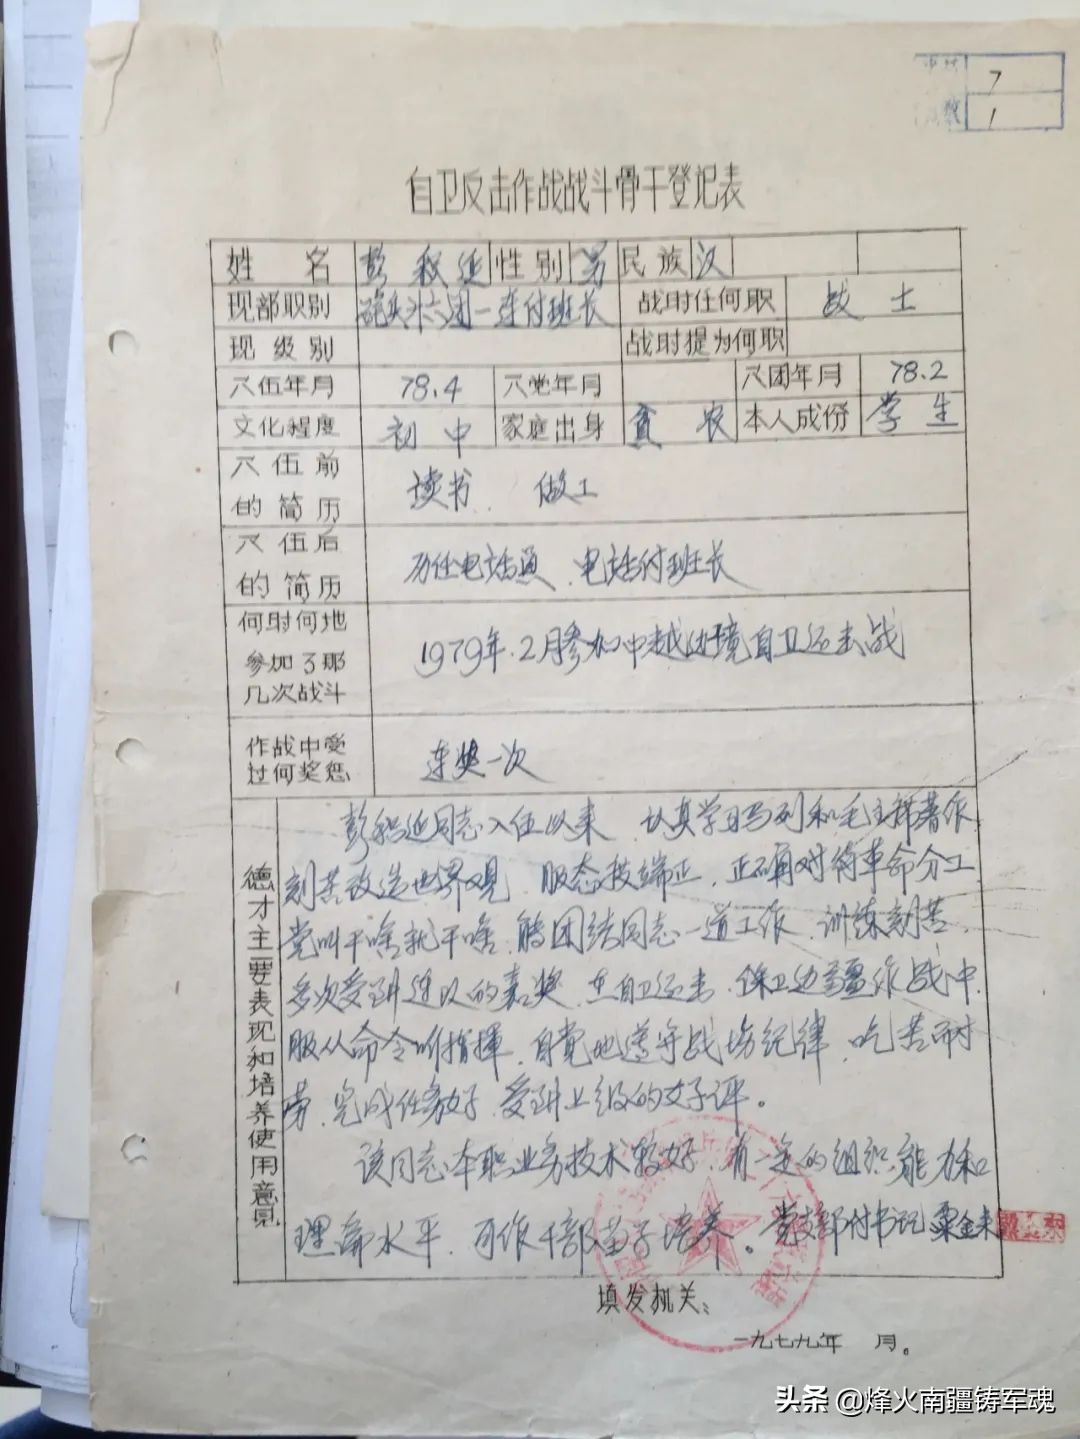 7
1
自卫反击作战战斗骨干登记表
姓名 彭 性别 男 民族 汉
现部职别 炮兵 六团一连付班长 战时任何职 战士
现级别 战时提为何职
入伍年月 78.4 入党年月 入团年月 78.2
文化程度 初中 家庭出身 贫农 本人成份 学生
入伍前的简历 读书 做工
入伍后的简历 历任电话 电话付班长
何时何地参加了那几次战斗 1979年.2月参加中越边境自卫还击战
作战中受过何奖惩 连奖一次
德才主要表现和培养使用意见
彭 同志入伍以来 认真学习马列和毛主席著作
刻苦改造世界观 服态 端正 正确对待革命分工
党叫干啥就干啥 团结同志一道工作 训练刻苦
多次受到连以的嘉奖 在自卫还击 保卫边疆作战中
服从命令听指挥 自觉地遵守战场纪律 吃苦耐
劳 完成任务好 受到上级的好评。
该同志本职业务技术较好 有一定的组织能力和
理论水平 可作干部苗子培养。党支部付书记 粟金来
填发机关:
一九七九年 月。
头条 @烽火南疆铸军魂